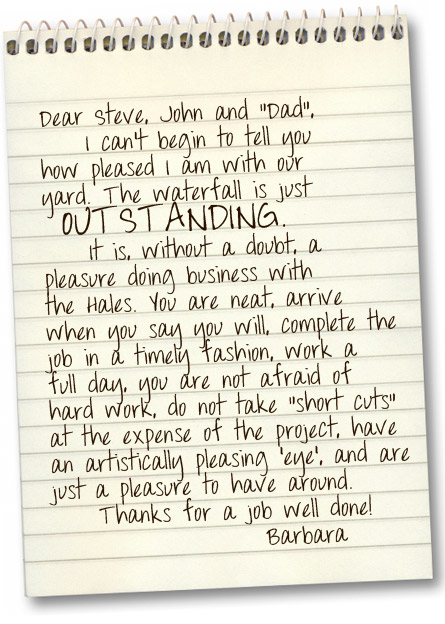 Dear Steve, John and "Dad",
I can't begin to tell you
how pleased I am with our
yard. The waterfall is just
OUTSTANDING.
It is, without a doubt, a
pleasure doing business with
the Hales. You are neat, arrive
when you say you will, complete the
job in a timely fashion, work a
full day, you are not afraid of
hard work, do not take "short cuts"
at the expense of the project, have
an artistically pleasing 'eye', and are
just a pleasure to have around.
Thanks for a job well done!
Barbara